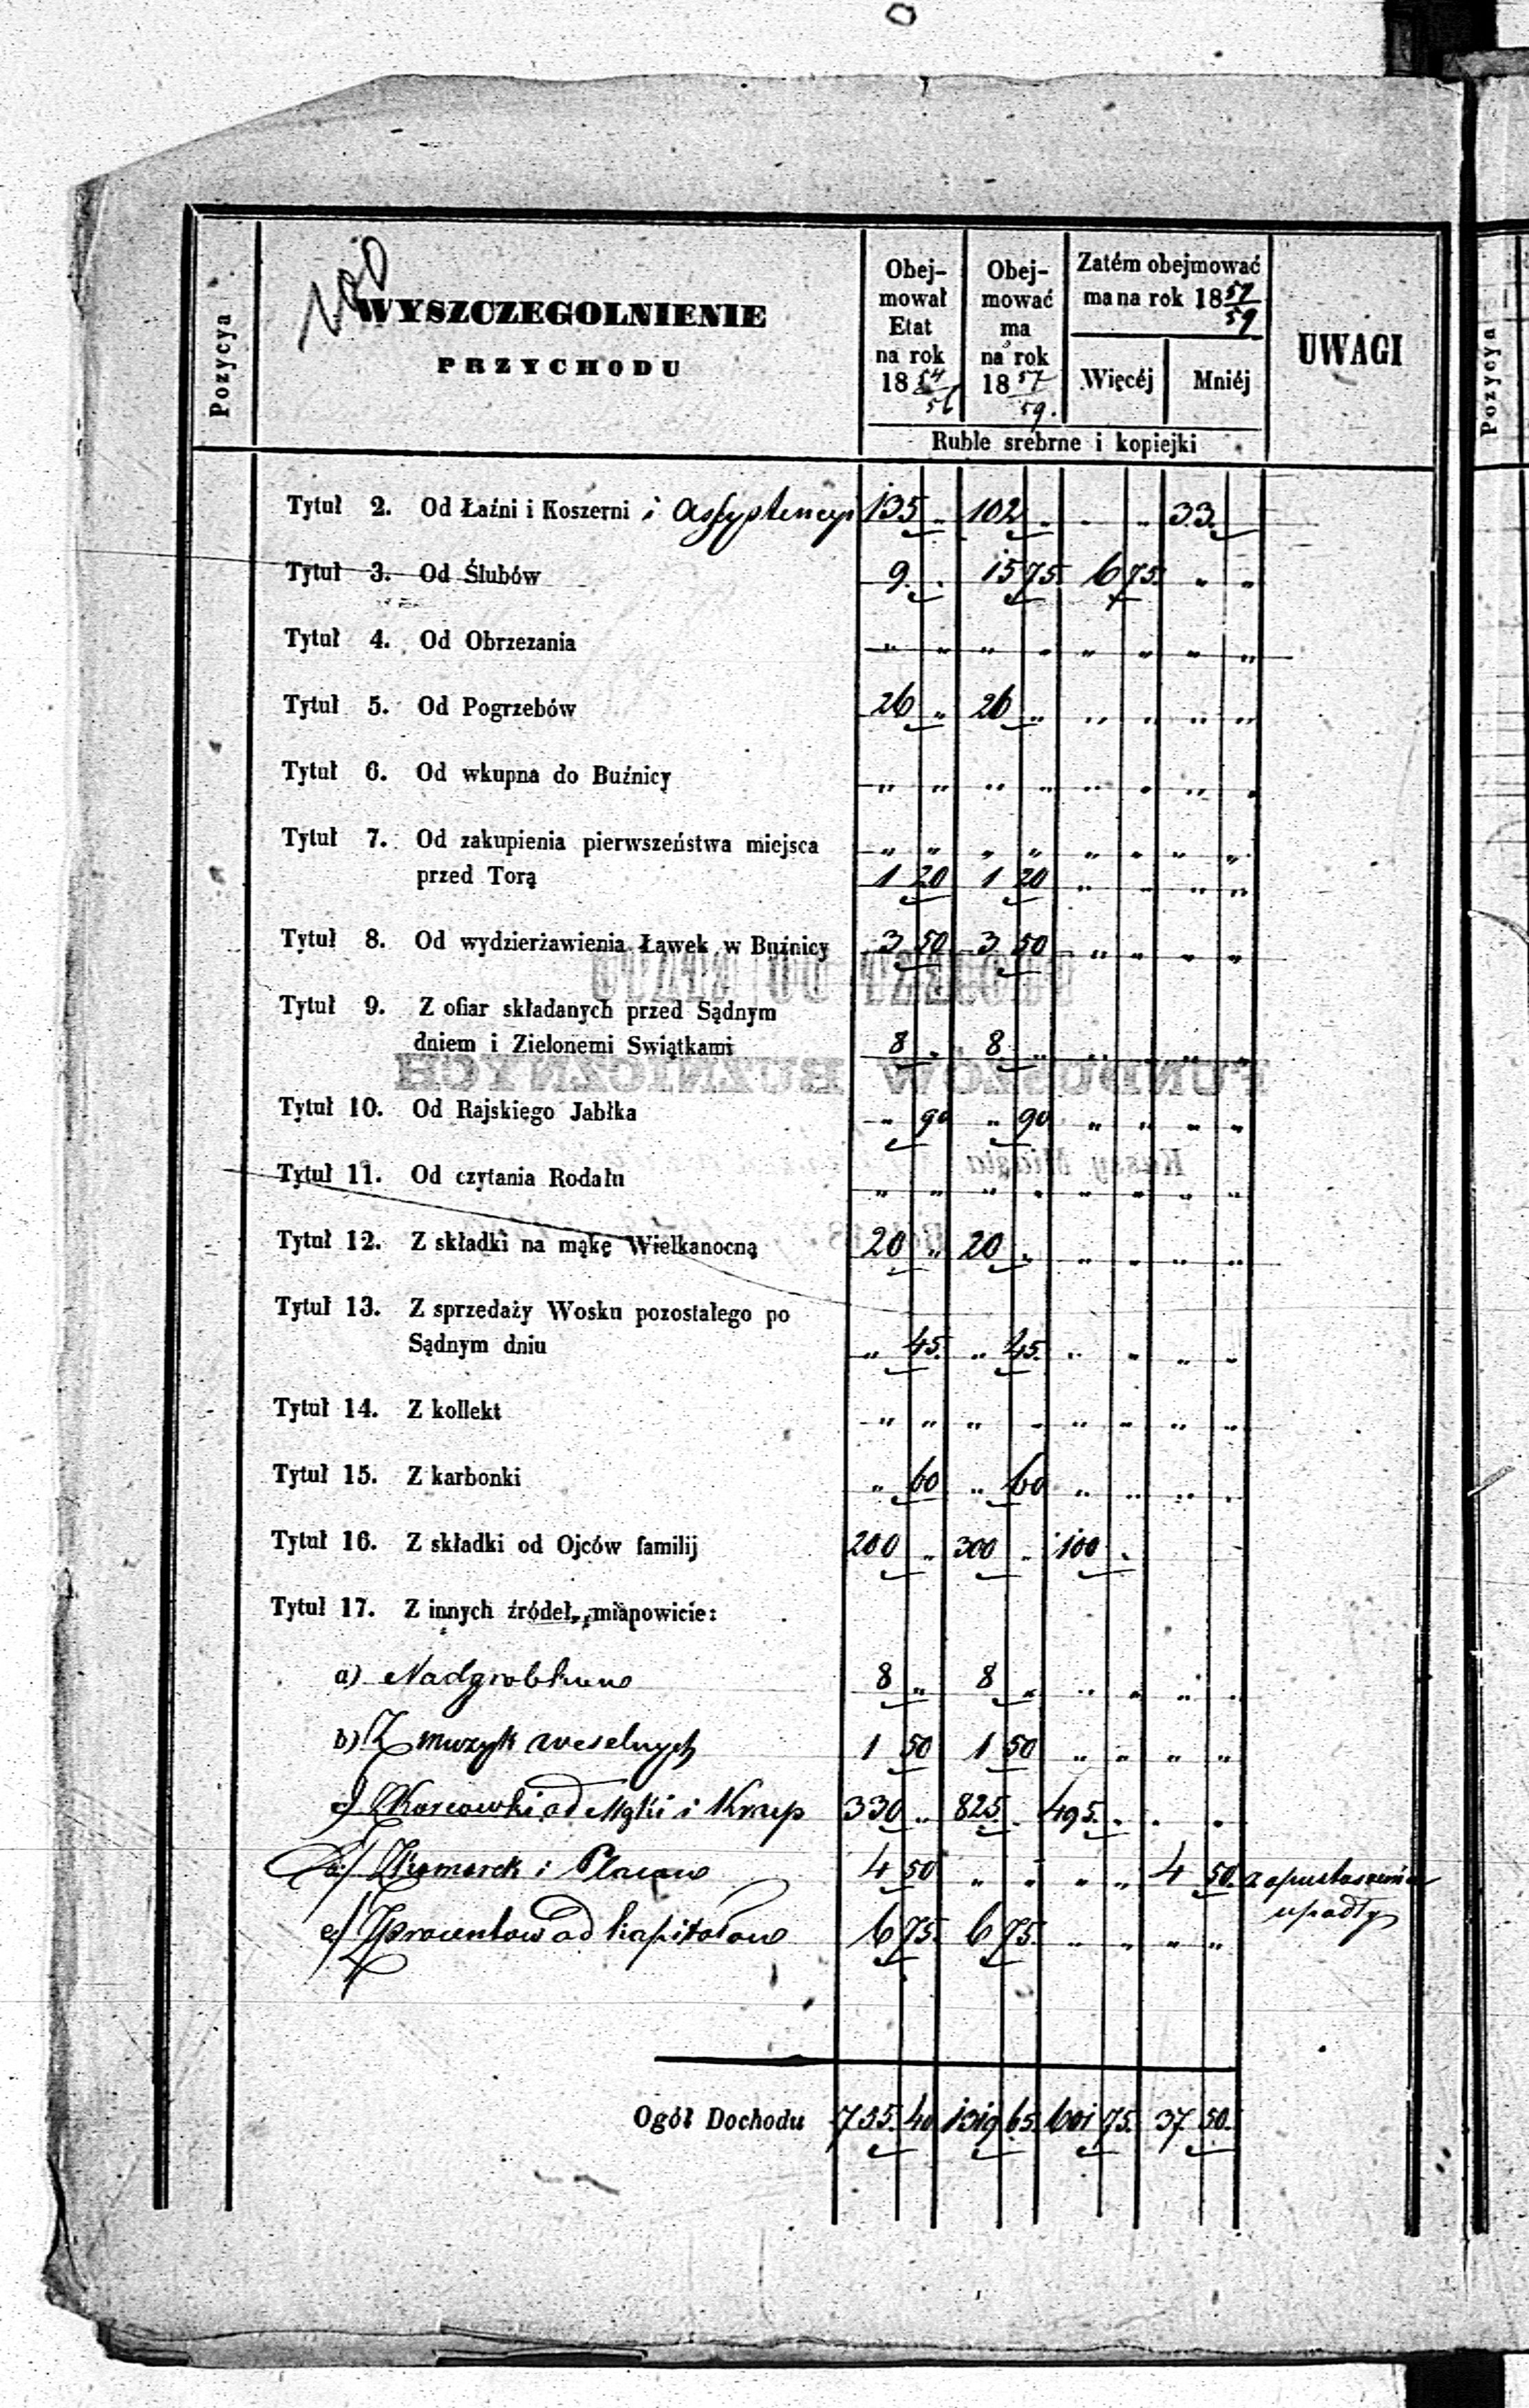 Pozycya
WYSZCZEGOLNIENIE
PRZYCHODU
Obej-
mował
Etat
na rok
18 54/56
Obej-
mować
ma
na rok
18 57/59.
Zatém obejmować
ma na rok 18 57/59
Więcéj
Mniéj
UWAGI
Ruble srebrne i kopiejki
Tytuł 2. Od Łaźni i Koszerni i Assystencyi 135 „ 102 „ „ „ 33.
Tytuł 3. Od Ślubów 9. „ 15 75. 6 75. „ „
Tytuł 4. Od Obrzezania „ „ „ „ „ „ „ „
Tytuł 5. Od Pogrzebów 26 „ 26 „ „ „ „ „
Tytuł 6. Od wkupna do Buźnicy „ „ „ „ „ „ „ „
Tytuł 7. Od zakupienia pierwszeństwa miejsca „ „ „ „ „ „ „ „
przed Torą 1 20 1 20 „ „ „ „
Tytuł 8. Od wydzierżawienia Ławek w Buźnicy 3 50 3 50 „ „ „ „
Tytuł 9. Z ofiar składanych przed Sądnym
dniem i Zielonemi Swiątkami 8 „ 8 „ „ „ „ „
Tytuł 10. Od Rajskiego Jabłka „ 90 „ 90 „ „ „ „
Tytuł 11. Od czytania Rodału „ „ „ „ „ „ „ „
Tytuł 12. Z składki na mąkę Wielkanocną 20 „ 20 „ „ „ „ „
Tytuł 13. Z sprzedaży Wosku pozostałego po
Sądnym dniu „ 45. „ 45. „ „ „ „
Tytuł 14. Z kollekt „ „ „ „ „ „ „ „
Tytuł 15. Z karbonki „ 60 „ 60 „ „ „ „
Tytuł 16. Z składki od Ojców familij 200 „ 300 „ 100 „
Tytuł 17. Z innych źródeł, mianowicie:
a) Nadgrobkowe 8 „ 8 „ „ „ „ „
b) Z muzyk weselnych 1 50 1 50 „ „ „ „
c) Korcowki od Mąki i Krup 330 „ 825. „ 495. „ „ „
d) Z Jamarek i Placow 4 50 „ „ „ „ 4 50.
upadły
e) Z procentow od kapitałow 6 75. 6 75. „ „ „ „
Ogół Dochodu 735. 40 1319 65. 601 75. 37 50.
Pozycya